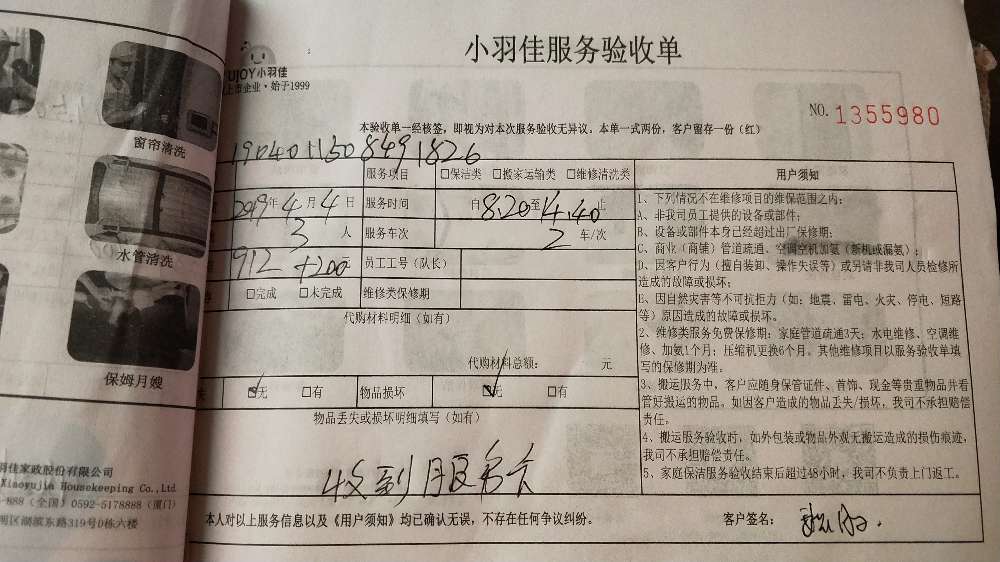 小羽佳服务验收单
UJOY小羽佳
上市企业·始于1999
NO. 1355980
本验收单一经核签，即视为对本次服务验收无异议，本单一式两份，客户留存一份（红）
1904011508491826
服务项目 □保洁类 □搬家运输类 □维修清洗类
2019年4月4日 服务时间 自8.20至14.40止
3人 服务车次 2车/次
912+200元 员工工号（队长）
□完成 □未完成 维修类保修期
代购材料明细（如有）
代购材料总额： 元
☑无 □有 物品损坏 ☑无 □有
物品丢失或损坏明细填写（如有）
收到服务
用户须知
1、下列情况不在维修项目的维保范围之内：
A、非我司员工提供的设备或部件；
B、设备或部件本身已经超过出厂保修期；
C、商业（商铺）管道疏通、空调空机加氨（新机或漏氨）；
D、因客户行为（擅自装卸、操作失误等）或另请非我司人员检修所
造成的故障或损坏；
E、因自然灾害等不可抗拒力（如：地震、雷电、火灾、停电、短路
等）原因造成的故障或损坏。
2、维修类服务免费保修期：家庭管道疏通3天；水电维修、空调维
修、加氨1个月；压缩机更换6个月。其他维修项目以服务验收单填
写的保修期为准。
3、搬运服务中，客户应随身保管证件、首饰、现金等贵重物品并看
管好搬运的物品。如因客户造成的物品丢失/损坏，我司不承担赔偿
责任。
4、搬运服务验收时，如外包装或物品外观无搬运造成的损伤痕迹，
我司不承担赔偿责任。
5、家庭保洁服务验收结束后超过48小时，我司可不负责上门返工。
本人对以上服务信息以及《用户须知》均已确认无误，不存在任何争议纠纷。 客户签名：
窗帘清洗
水管清洗
保姆月嫂
羽佳家政股份有限公司
Xiaoyujia Housekeeping Co.,Ltd
-888（全国）0592-5178888（厦门）
明区湖滨东路319号D栋六楼